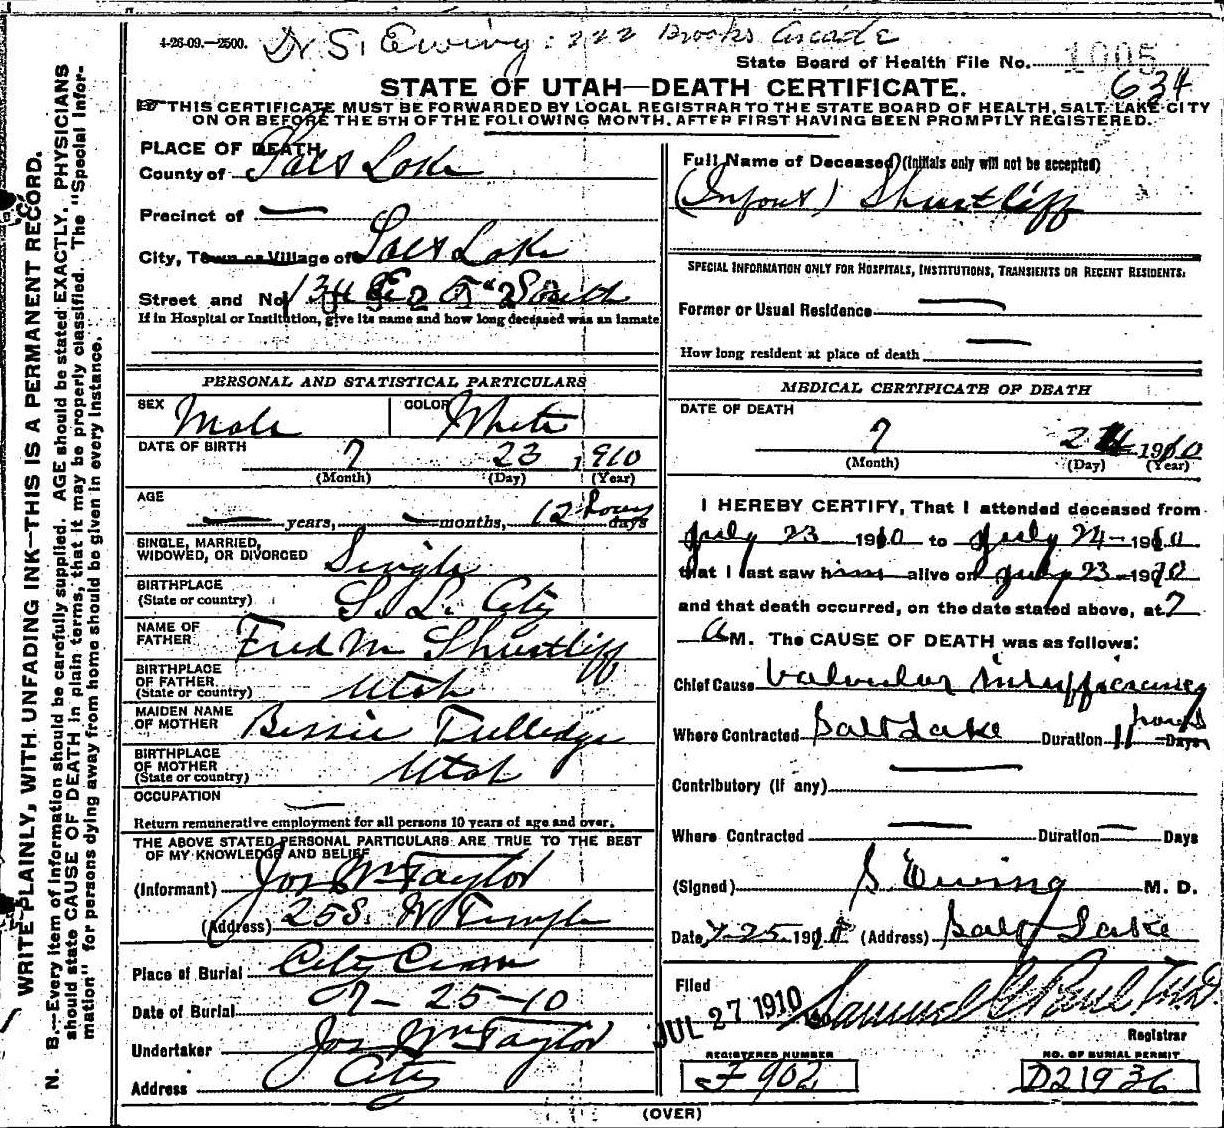 4-26-09.—2500. Dr S. Ewing: 222 Brooks Arcade
State Board of Health File No. 1005
634
STATE OF UTAH—DEATH CERTIFICATE.
THIS CERTIFICATE MUST BE FORWARDED BY LOCAL REGISTRAR TO THE STATE BOARD OF HEALTH, SALT LAKE CITY
ON OR BEFORE THE 5TH OF THE FOLLOWING MONTH, AFTER FIRST HAVING BEEN PROMPTLY REGISTERED.
WRITE PLAINLY, WITH UNFADING INK—THIS IS A PERMANENT RECORD.
N. B.—Every item of information should be carefully supplied. AGE should be stated EXACTLY. PHYSICIANS
should state CAUSE OF DEATH in plain terms, that it may be properly classified. The "Special Infor-
mation" for persons dying away from home should be given in every instance.
PLACE OF DEATH
County of Salt Lake
Precinct of —
City, Town or Village of Salt Lake
Street and No. South
If in Hospital or Institution, give its name and how long deceased was an inmate
PERSONAL AND STATISTICAL PARTICULARS
SEX Male COLOR White
DATE OF BIRTH 7 23 1910
(Month) (Day) (Year)
AGE — years, — months, 12 hours days
SINGLE, MARRIED,
WIDOWED, OR DIVORCED Single
BIRTHPLACE
(State or country) S. L. City
NAME OF
FATHER Fred M Shurtliff
BIRTHPLACE
OF FATHER
(State or country) Utah
MAIDEN NAME
OF MOTHER Bessie Tulledge
BIRTHPLACE
OF MOTHER
(State or country) Utah
OCCUPATION —
Return remunerative employment for all persons 10 years of age and over.
THE ABOVE STATED PERSONAL PARTICULARS ARE TRUE TO THE BEST
OF MY KNOWLEDGE AND BELIEF
(Informant) Jos Wm Taylor
(Address) 25 S. W Temple
Place of Burial City Cem
Date of Burial 7-25-10
Undertaker Jos Wm Taylor
Address City
Full Name of Deceased (Initials only will not be accepted)
(Infant) Shurtliff
SPECIAL INFORMATION ONLY FOR HOSPITALS, INSTITUTIONS, TRANSIENTS OR RECENT RESIDENTS.
Former or Usual Residence —
How long resident at place of death —
MEDICAL CERTIFICATE OF DEATH
DATE OF DEATH
7 24 1910
(Month) (Day) (Year)
I HEREBY CERTIFY, That I attended deceased from
July 23 1910 to July 24 1910
that I last saw him alive on July 23 1910
and that death occurred, on the date stated above, at 7
A M. The CAUSE OF DEATH was as follows:
Chief Cause Valvular insufficiency
Where Contracted Salt Lake Duration 11 hours Days
Contributory (if any) —
Where Contracted — Duration — Days
(Signed) S. Ewing M. D.
Date 7-25-1910 (Address) Salt Lake
Filed
JUL 27 1910 Samuel G Paul M.D.
Registrar
REGISTERED NUMBER
F 902
NO. OF BURIAL PERMIT
D21936
(OVER)